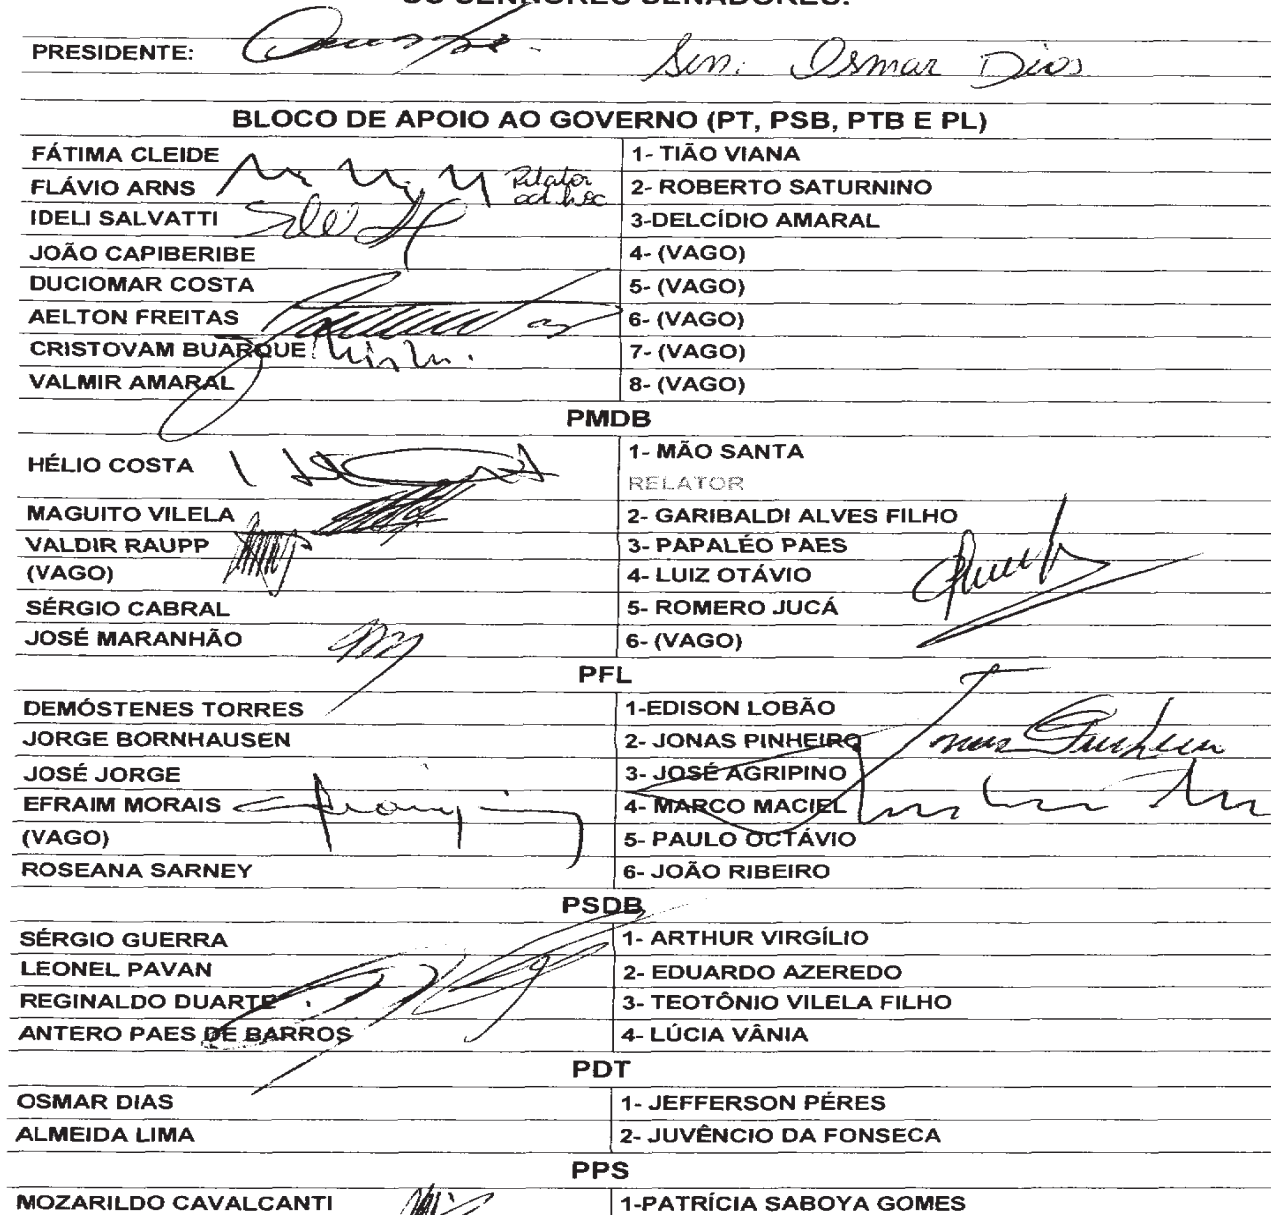 OS SENHORES SENADORES:
PRESIDENTE: Sen. Osmar Dias
BLOCO DE APOIO AO GOVERNO (PT, PSB, PTB E PL)
FÁTIMA CLEIDE 1- TIÃO VIANA
FLÁVIO ARNS Relator ad hoc 2- ROBERTO SATURNINO
IDELI SALVATTI 3-DELCÍDIO AMARAL
JOÃO CAPIBERIBE 4- (VAGO)
DUCIOMAR COSTA 5- (VAGO)
AELTON FREITAS 6- (VAGO)
CRISTOVAM BUARQUE 7- (VAGO)
VALMIR AMARAL 8- (VAGO)
PMDB
HÉLIO COSTA 1- MÃO SANTA
RELATOR
MAGUITO VILELA 2- GARIBALDI ALVES FILHO
VALDIR RAUPP 3- PAPALÉO PAES
(VAGO) 4- LUIZ OTÁVIO
SÉRGIO CABRAL 5- ROMERO JUCÁ
JOSÉ MARANHÃO 6- (VAGO)
PFL
DEMÓSTENES TORRES 1-EDISON LOBÃO
JORGE BORNHAUSEN 2- JONAS PINHEIRO Jonas Pinheiro
JOSÉ JORGE 3- JOSÉ AGRIPINO
EFRAIM MORAIS 4- MARCO MACIEL
(VAGO) 5- PAULO OCTÁVIO
ROSEANA SARNEY 6- JOÃO RIBEIRO
PSDB
SÉRGIO GUERRA 1- ARTHUR VIRGÍLIO
LEONEL PAVAN 2- EDUARDO AZEREDO
REGINALDO DUARTE 3- TEOTÔNIO VILELA FILHO
ANTERO PAES DE BARROS 4- LÚCIA VÂNIA
PDT
OSMAR DIAS 1- JEFFERSON PÉRES
ALMEIDA LIMA 2- JUVÊNCIO DA FONSECA
PPS
MOZARILDO CAVALCANTI 1-PATRÍCIA SABOYA GOMES